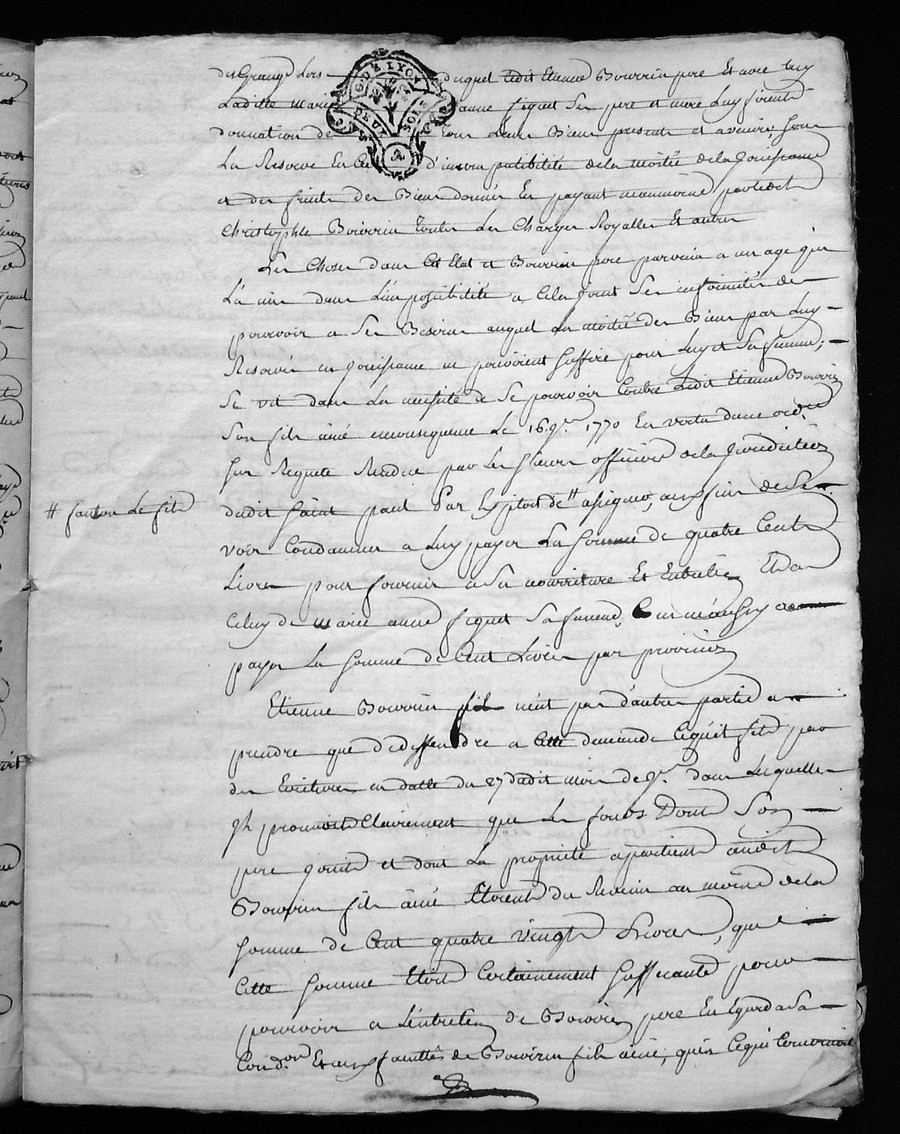 des Granges Lors duquel ledit Etienne Bouvrin pere Et avec luy
Ladite Marie anne figuet Ses pere et mere Luy firent
donnation de Tous Leurs Biens presents et avenir, sous
La Reserve En Cas d'incompatibilité de la moitié de la Jouissance
et des fruits des Biens donnés En payant neanmoins par ledit
Christophle Bouvrin Toutes Les Charges Royalles Et autres
G. DE LYON
DEUX SOLS
Les Choses dans Cet Etat et Bouvrin pere parvenu a un age qui
L'a mis dans L'impossibilité a Cela Joint Ses infirmités de
pourvoir a Ses Besoins auquel La moitié des Biens par Luy
Reservés en Jouissance ne pouvoient suffire pour Luy et Sa femme,
Se vit dans La necessité de Se pourvoir Contre Ledit Etienne Bouvrin
Son fils ainé en consequence Le 16 9bre 1770 En vertu d'une ordce
Sur Requete Rendue par Les Sieurs officiers de la Jurisdiction
dudit Saint paul Par Exploit de # assigner, aux fins de Se
# fanton Le fils
voir Condamner a Luy payer La Somme de quatre Cent
Livres pour fournir a Sa nourriture Et Entretien Et a
Celuy de Marie anne figuet Sa femme,
payer La Somme de Cent Livres par provision
Etienne Bouvrin fils n'eut pas d'autre partie a
prendre que de deffendre a Cette demande Ce qu'il fit par
des Ecritures en datte du 27 dudit mois de 9bre dans Lesquelles
Il Clairement que Les fonds Dont Son
pere Jouit et dont La proprieté apartient audit
Bouvrin fils ainé Etoient du Revenu au moins de la
Somme de Cent quatre vingt Livres, que
Cette Somme Etoit Certainement Suffisante pour
pourvoir a L'entretien de Bouvrin pere En Egard a Sa
Condon Et aux facultés de Bouvrin fils ainé,